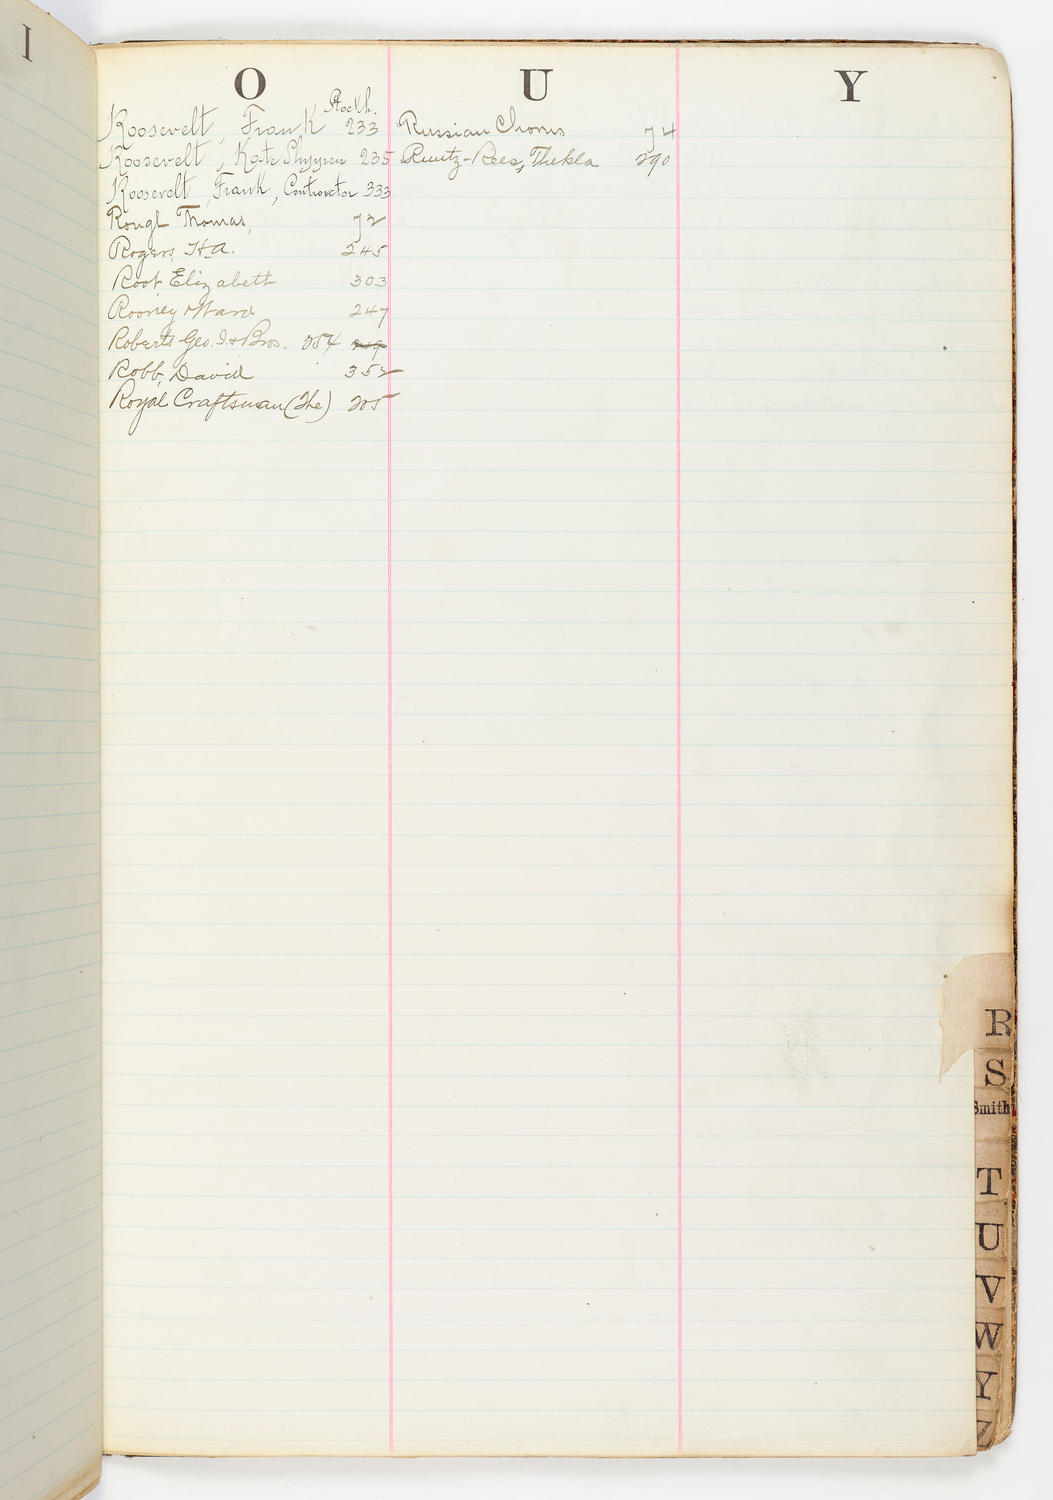 I
O U Y
Stockh.
Roosevelt, Frank 233
Roosevelt, Kate Shippen 235
Roosevelt, Frank, Contractor 333
Rough Thomas, 72
Rogers, H.A. 245
Root, Elizabeth 303
Rooney Ward 247
Roberts Geo. I. & Bros. 254
Robb, David 352
Royal Craftsman (The) 205
Russian Chorus 74
Runtz-Rees, Thekla 290
R
S
Smith
T
U
V
W
Y
Z